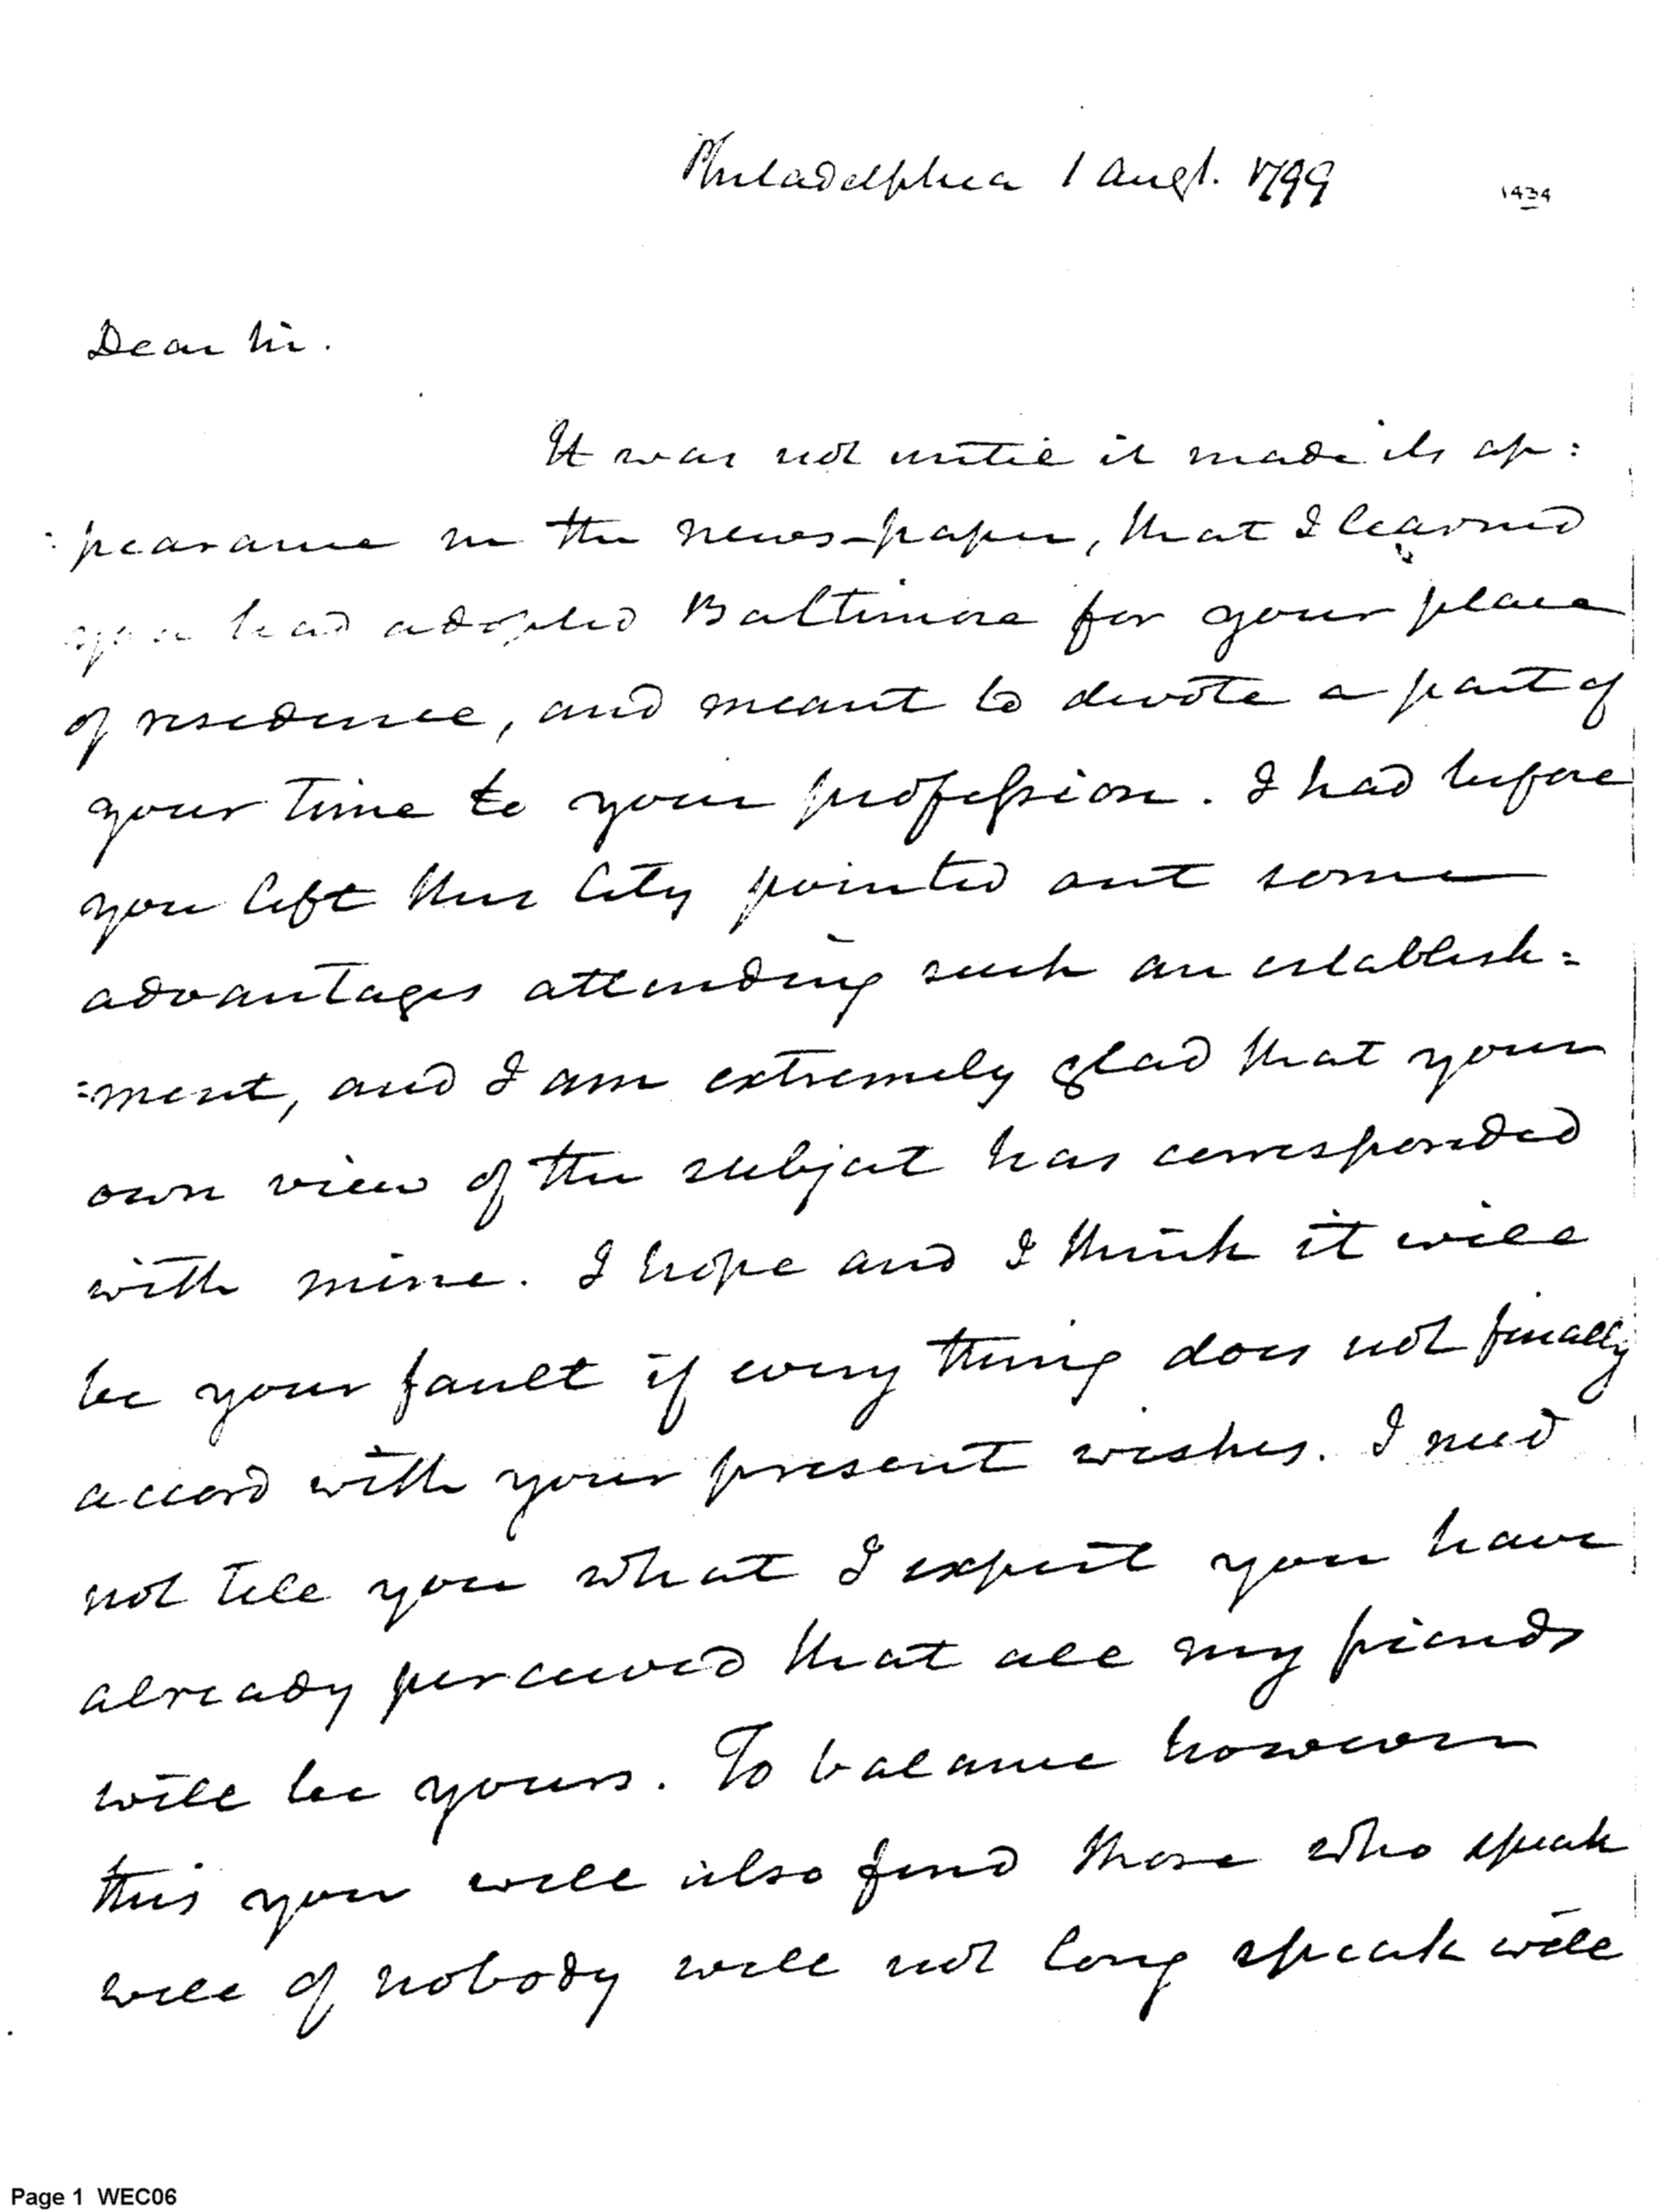 Philadelphia 1 Augt. 1799
1434
Dear Sir.
It was not until it made its ap:
:pearance in the news-paper, that I learned
you had adopted Baltimore for your place
of residence, and meant to devote a part of
your time to your profession. I had before
you left this City pointed out some
advantages attending such an establish=
=ment, and I am extremely glad that your
own view of the subject has corresponded
with mine. I hope and I think it will
be your fault if every thing does not finally
accord with your present wishes. I need
not tell you what I expect you have
already perceived that all my friends
will be yours. To balance however
this you will also find those who speak
well of nobody will not long speak well
Page 1 WEC06